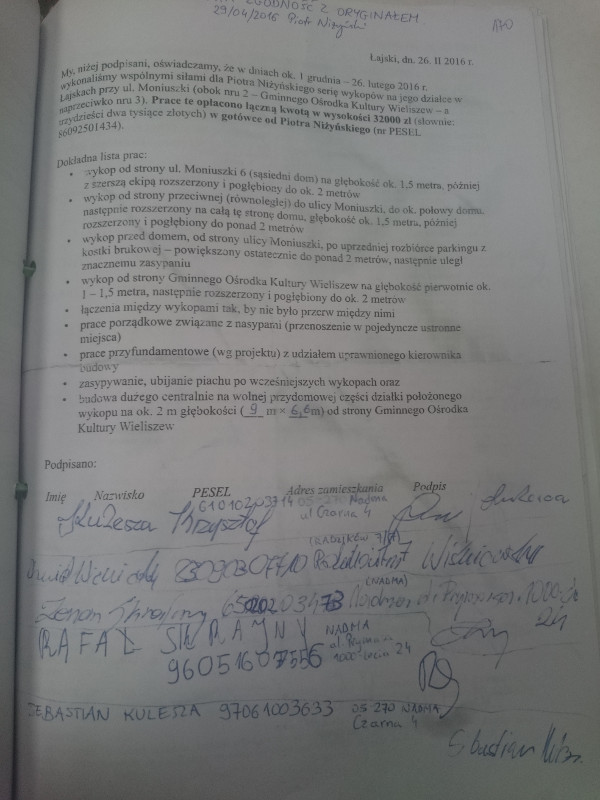 ZGODNOŚĆ Z ORYGINAŁEM
29/04/2016 Piotr Niżyński
Łajski, dn. 26. II 2016 r.
My, niżej podpisani, oświadczamy, że w dniach ok. 1 grudnia – 26. lutego 2016 r.
wykonaliśmy wspólnymi siłami dla Piotra Niżyńskiego serię wykopów na jego działce w
Łajskach przy ul. Moniuszki (obok nru 2 – Gminnego Ośrodka Kultury Wieliszew – a
naprzeciwko nru 3). Prace te opłacono łączną kwotą w wysokości 32000 zł (słownie:
trzydzieści dwa tysiące złotych) w gotówce od Piotra Niżyńskiego (nr PESEL
86092501434).
Dokładna lista prac:
• wykop od strony ul. Moniuszki 6 (sąsiedni dom) na głębokość ok. 1,5 metra, później
z szerszą ekipą rozszerzony i pogłębiony do ok. 2 metrów
• wykop od strony przeciwnej (równoległej) do ulicy Moniuszki, do ok. połowy domu,
następnie rozszerzony na całą tę stronę domu, głębokość ok. 1,5 metra, później
rozszerzony i pogłębiony do ponad 2 metrów
• wykop przed domem, od strony ulicy Moniuszki, po uprzedniej rozbiórce parkingu z
kostki brukowej – powiększony ostatecznie do ponad 2 metrów, następnie uległ
znacznemu zasypaniu
• wykop od strony Gminnego Ośrodka Kultury Wieliszew na głębokość pierwotnie ok.
1 – 1,5 metra, następnie rozszerzony i pogłębiony do ok. 2 metrów
• łączenia między wykopami tak, by nie było przerw między nimi
• prace porządkowe związane z nasypami (przenoszenie w pojedyncze ustronne
miejsca)
• prace przyfundamentowe (wg projektu) z udziałem uprawnionego kierownika
budowy
• zasypywanie, ubijanie piachu po wcześniejszych wykopach oraz
• budowa dużego centralnie na wolnej przydomowej części działki położonego
wykopu na ok. 2 m głębokości ( 9 m × 6,6 m) od strony Gminnego Ośrodka
Kultury Wieliszew
Podpisano:
Imię Nazwisko PESEL Adres zamieszkania Podpis
61010203714 05-270 Nadma
ul Czarna 4
Kulesza Krzysztof
Wiśniewski
(NADMA)
Zenon Skrajny
RAFAŁ SKRAJNY NADMA
1000-lecia 24
96051607556
SEBASTIAN KULESZA 97061003633 05 270 NADMA
Czarna 4
Sebastian